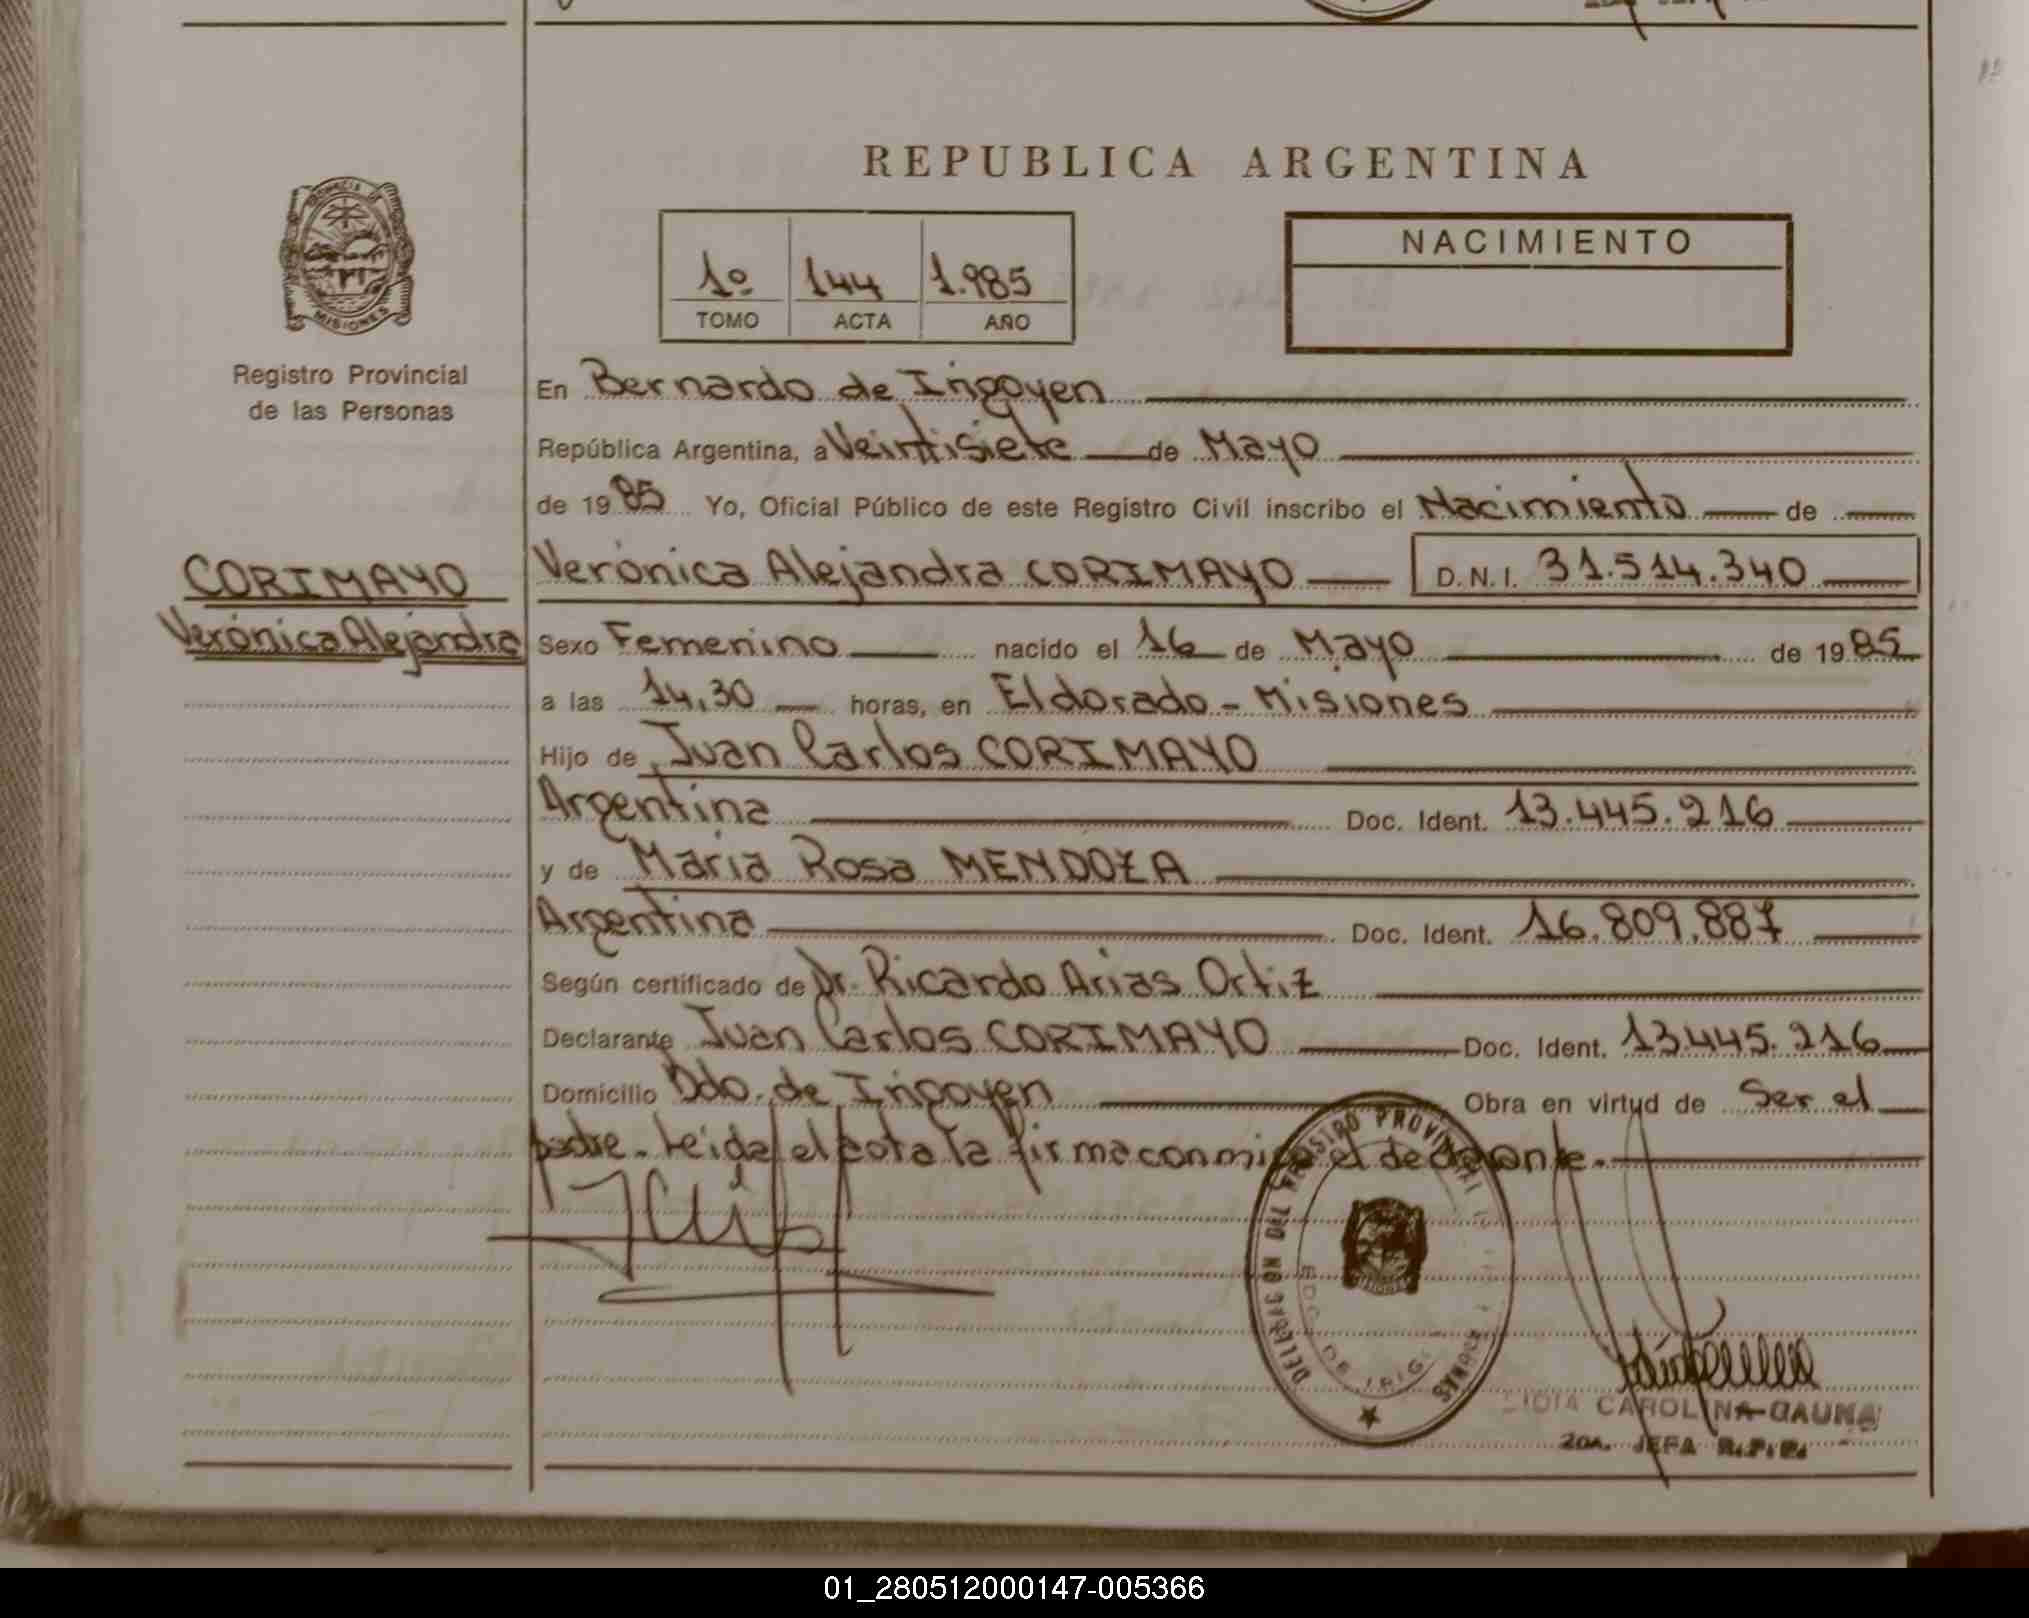 REPUBLICA ARGENTINA
PROVINCIA DE
MISIONES
Registro Provincial
de las Personas
1º 144 1.985
TOMO ACTA AÑO
NACIMIENTO
En Bernardo de Irigoyen
República Argentina, a Veintisiete de Mayo
de 1985 Yo, Oficial Público de este Registro Civil inscribo el Nacimiento de
CORIMAYO
Verónica Alejandra
Verónica Alejandra CORIMAYO D.N.I. 31.514.340
Sexo Femenino nacido el 16 de Mayo de 1985
a las 14,30 horas, en Eldorado - Misiones
Hijo de Juan Carlos CORIMAYO
Argentina Doc. Ident. 13.445.216
y de Maria Rosa MENDOZA
Argentina Doc. Ident. 16.809.887
Según certificado de Dr. Ricardo Arias Ortiz
Declarante Juan Carlos CORIMAYO Doc. Ident. 13.445.216
Domicilio Bdo. de Irigoyen Obra en virtud de Ser el
padre. Leida el acta la firma conmigo el declarante.
DELEGACION DEL REGISTRO PROVINCIAL
BDO. DE IRIG.
LIDIA CAROLINA GAUNA
2DA. JEFA R.P.P.
01_280512000147-005366